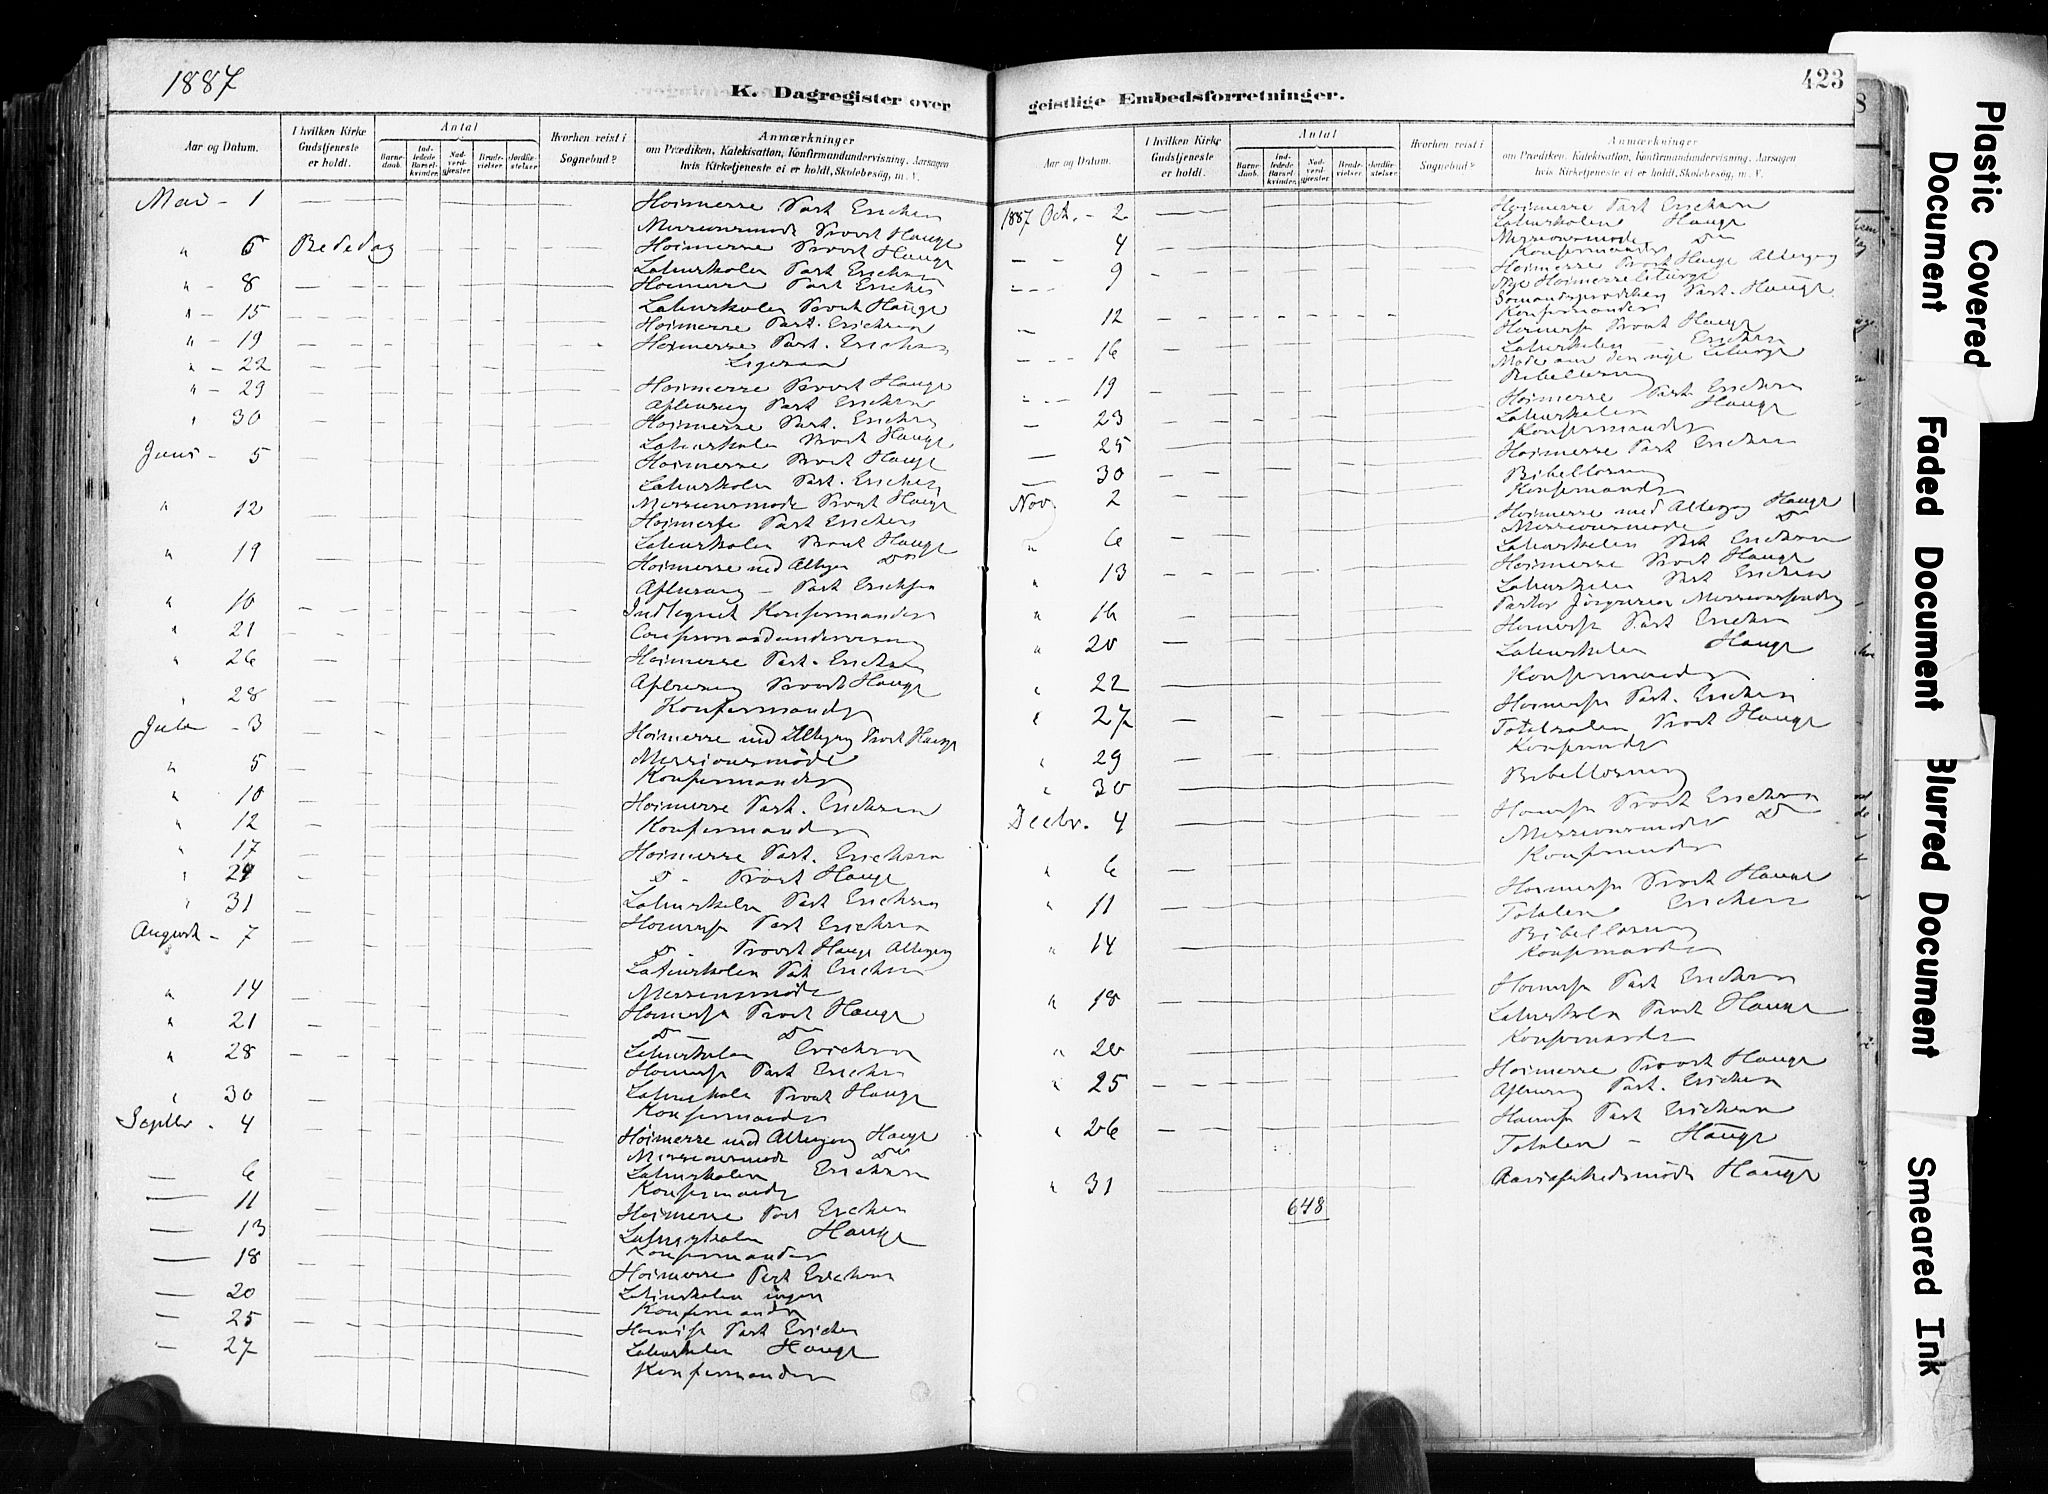 1887
K. Dagregister over
Aar og Datum.
I hvilken Kirke Gudstjeneste er holdt.
Antal
Barnedaab.
Indledede Barselkvinder.
Nadverdgjester.
Brudevielser.
Jordfæstelser.
Hvorhen reist i Sognebud?
Anmærkninger
om Prædiken, Katekisation, Konfirmandundervisning, Aarsagen
hvis Kirketjeneste ei er holdt, Skolebesøg, m. V.
Mai - 1 Høimesse Past Erichsen
Missionsmøde Provst Hauge
" 6 Bededag Høimesse Provst Hauge
Latinskolen Past Erichsen
" - 8 Høimesse Past Erichsen
Latinskolen Provst Hauge
" - 15 Høimesse Past. Erichsen
" - 19 Høimesse Past. Erichsen
" - 22 Ligesaa
" - 29 Høimesse Provst Hauge
Aftensang Past Erichsen
" 30 Høimesse Past. Erichsen
Latinskolen Provst Hauge
Juni - 5 Høimesse Provst Hauge
Latinskolen Past. Erichsen
Missionsmøde Provst Hauge
" 12 Høimesse Past Erichsen
Latinskolen Provst Hauge
" 19 Høimesse med Altergang Do
Aftensang - Past Erichsen
" 10 Indtegnet Konfirmander
" 21 Confirmandundervisning
" 26 Høimesse Past. Erichsen
Aftensang Provst Hauge
" 28 Konfirmander
Juli - 3 Høimesse med Altergang Provst Hauge
Missionsmøde
" 5 Konfirmander
" 10 Høimesse Past. Erichsen
" 12 Konfirmander
" 17 Høimesse Past. Erichsen
" 24 Do - Provst Hauge
" 31 Latinskolen Past Erichsen
Høimesse Past Erichsen
August - 7 Do - Provst Hauge Altergang
Latinskolen Past Erichsen
Missionsmøde
" 14 Høimesse Provst Hauge
" 21 Do Do
Latinskolen Erichsen
" 28 Høimesse Past Erichsen
Latinskolen Provst Hauge
" 30 Konfirmander
Septbr. 4 Høimesse med Altergang Hauge
Missionsmøde Do
Latinskolen Erichsen
— 6 Konfirmander
— 11 Høimesse Past Erichsen
Latinskolen Hauge
— 13 Konfirmander
— 18 Høimesse Past Erichsen
Latinskolen ingen
— 20 Konfirmander
— 25 Høimesse Past Erichsen
Latinskolen Hauge
— 27 Konfirmander
423
geistlige Embedsforretninger.
Aar og Datum.
I hvilken Kirke Gudstjeneste er holdt.
Antal
Barnedaab.
Indledede Barselkvinder.
Nadverdgjester.
Brudevielser.
Jordfæstelser.
Hvorhen reist i Sognebud?
Anmærkninger
om Prædiken, Katekisation, Konfirmandundervisning, Aarsagen
hvis Kirketjeneste ei er holdt, Skolebesøg, m. V.
1887 Oct. - 2 Høimesse Past Erichsen
Latinskolen Hauge
Missionsmøde Do
4 Konfirmander
9 Høimesse Provst Hauge Altergang
Nye Høimesseliturgi
Past. Hauge
Konfirmander
12
16 Høimesse Provst Hauge
Latinskolen Erichsen
Møde om den nye Liturgi
19 Bibellæsning
23 Høimesse Past Erichsen
Latinskolen Hauge
25 Konfirmander
30 Høimesse Past Erichsen
Nov. 2 Bibellæsning
Konfirmander
" 6 Høimesse med Altergang Hauge
Missionsmøde Do
Latinskolen Past Erichsen
" 13 Høimesse Provst Hauge
Latinskolen Past Erichsen
" 16 Pastor Jørgensen
" 20 Høimesse Past Erichsen
Latinskolen Hauge
" 22 Konfirmander
" 27 Høimesse Past. Erichsen
Totalsalen Provst Hauge
" 29 Konfirmander
" 30 Bibellæsning
Decbr. 4 Høimesse Provst Erichsen
Missionsmøde Do
" 6 Konfirmander
" 11 Høimesse Provst Hauge
Totalen Erichsen
" 14 Bibellæsning
Konfirmander
" 18 Høimesse Past Erichsen
Latinskolen Provst Hauge
" 20 Konfirmander
" 25 Høimesse Provst Hauge
Aftensang Past. Erichsen
" 26 Høimesse Past Erichsen
Totalen - Hauge
" 31 Hauge
648
Plastic Covered Document
Faded Document
Blurred Document
Smeared Ink